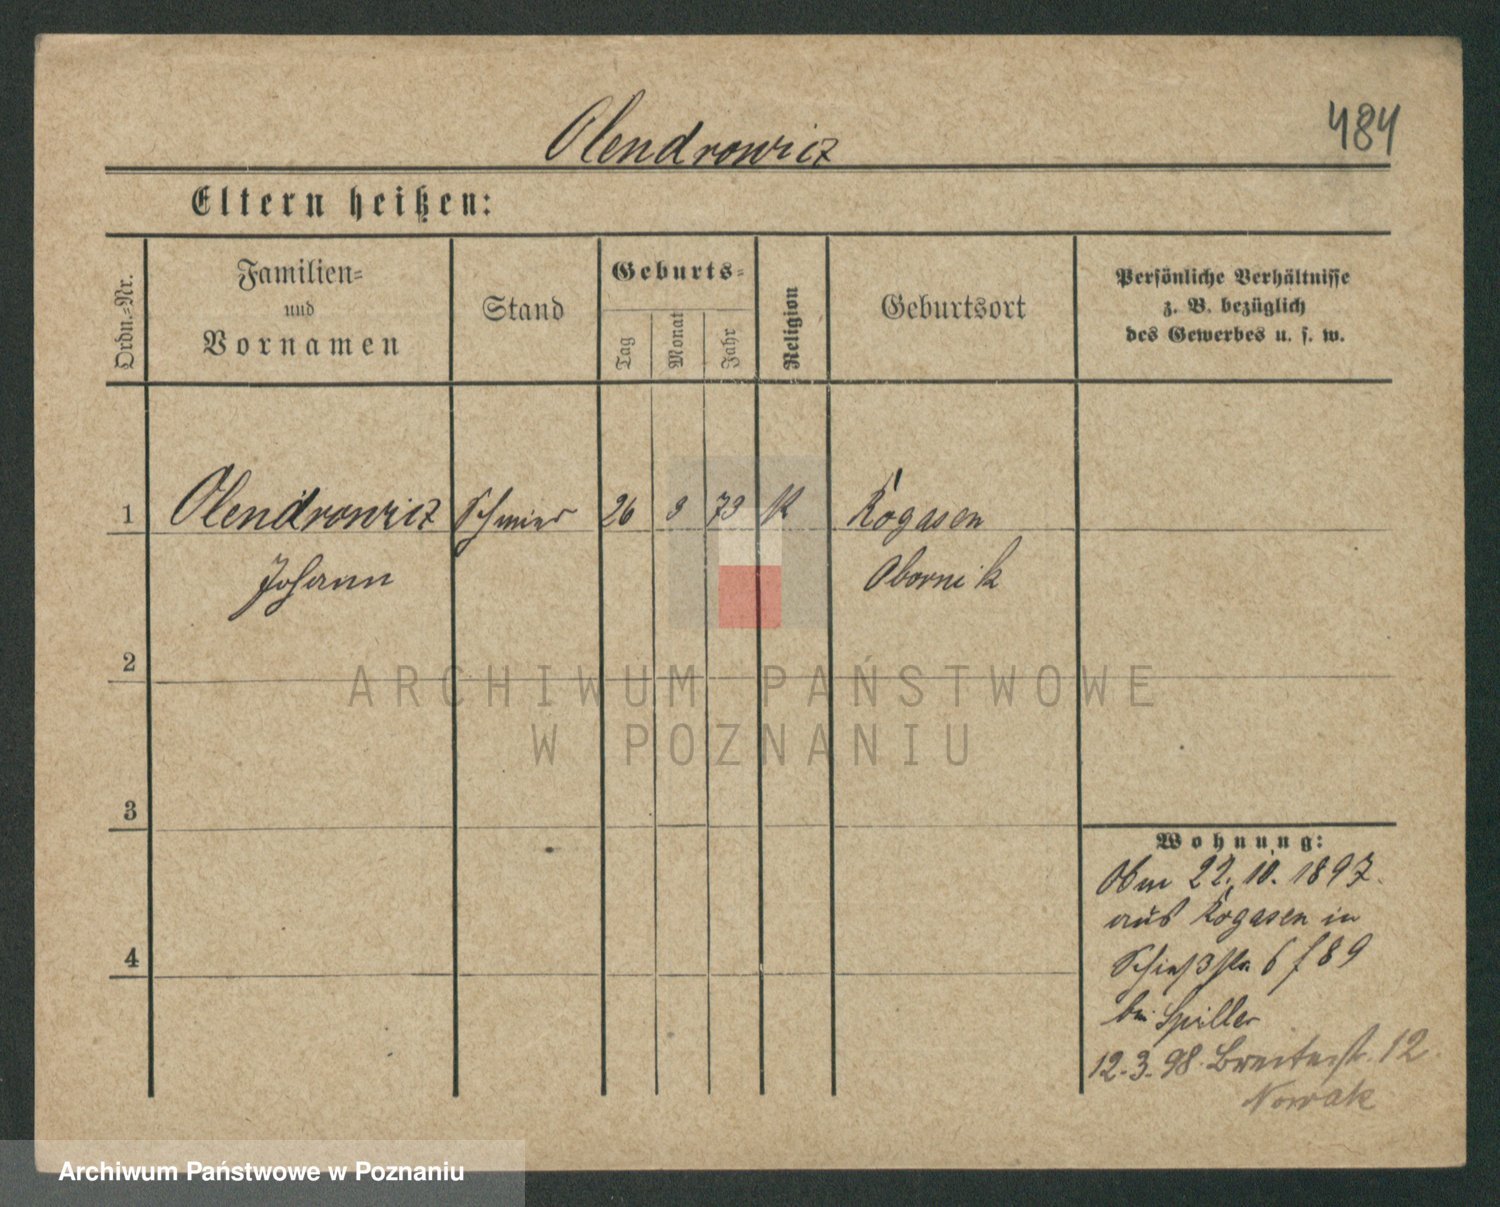 Olendrowicz
484
Eltern heißen:
Ordn.-Nr.
Familien-
und
Vornamen
Stand
Geburts-
Tag
Monat
Jahr
Religion
Geburtsort
Persönliche Verhältnisse
z. B. bezüglich
des Gewerbes u. s. w.
1 Olendrowicz 26 9 73 K Rogasen
Johann Obornik
2
ARCHIWUM PAŃSTWOWE
W POZNANIU
3
4
Wohnung:
22. 10. 1897.
aus Rogasen in
6 f 89
bei Spiller
12.3.98. Breitestr. 12.
Nowak
Archiwum Państwowe w Poznaniu